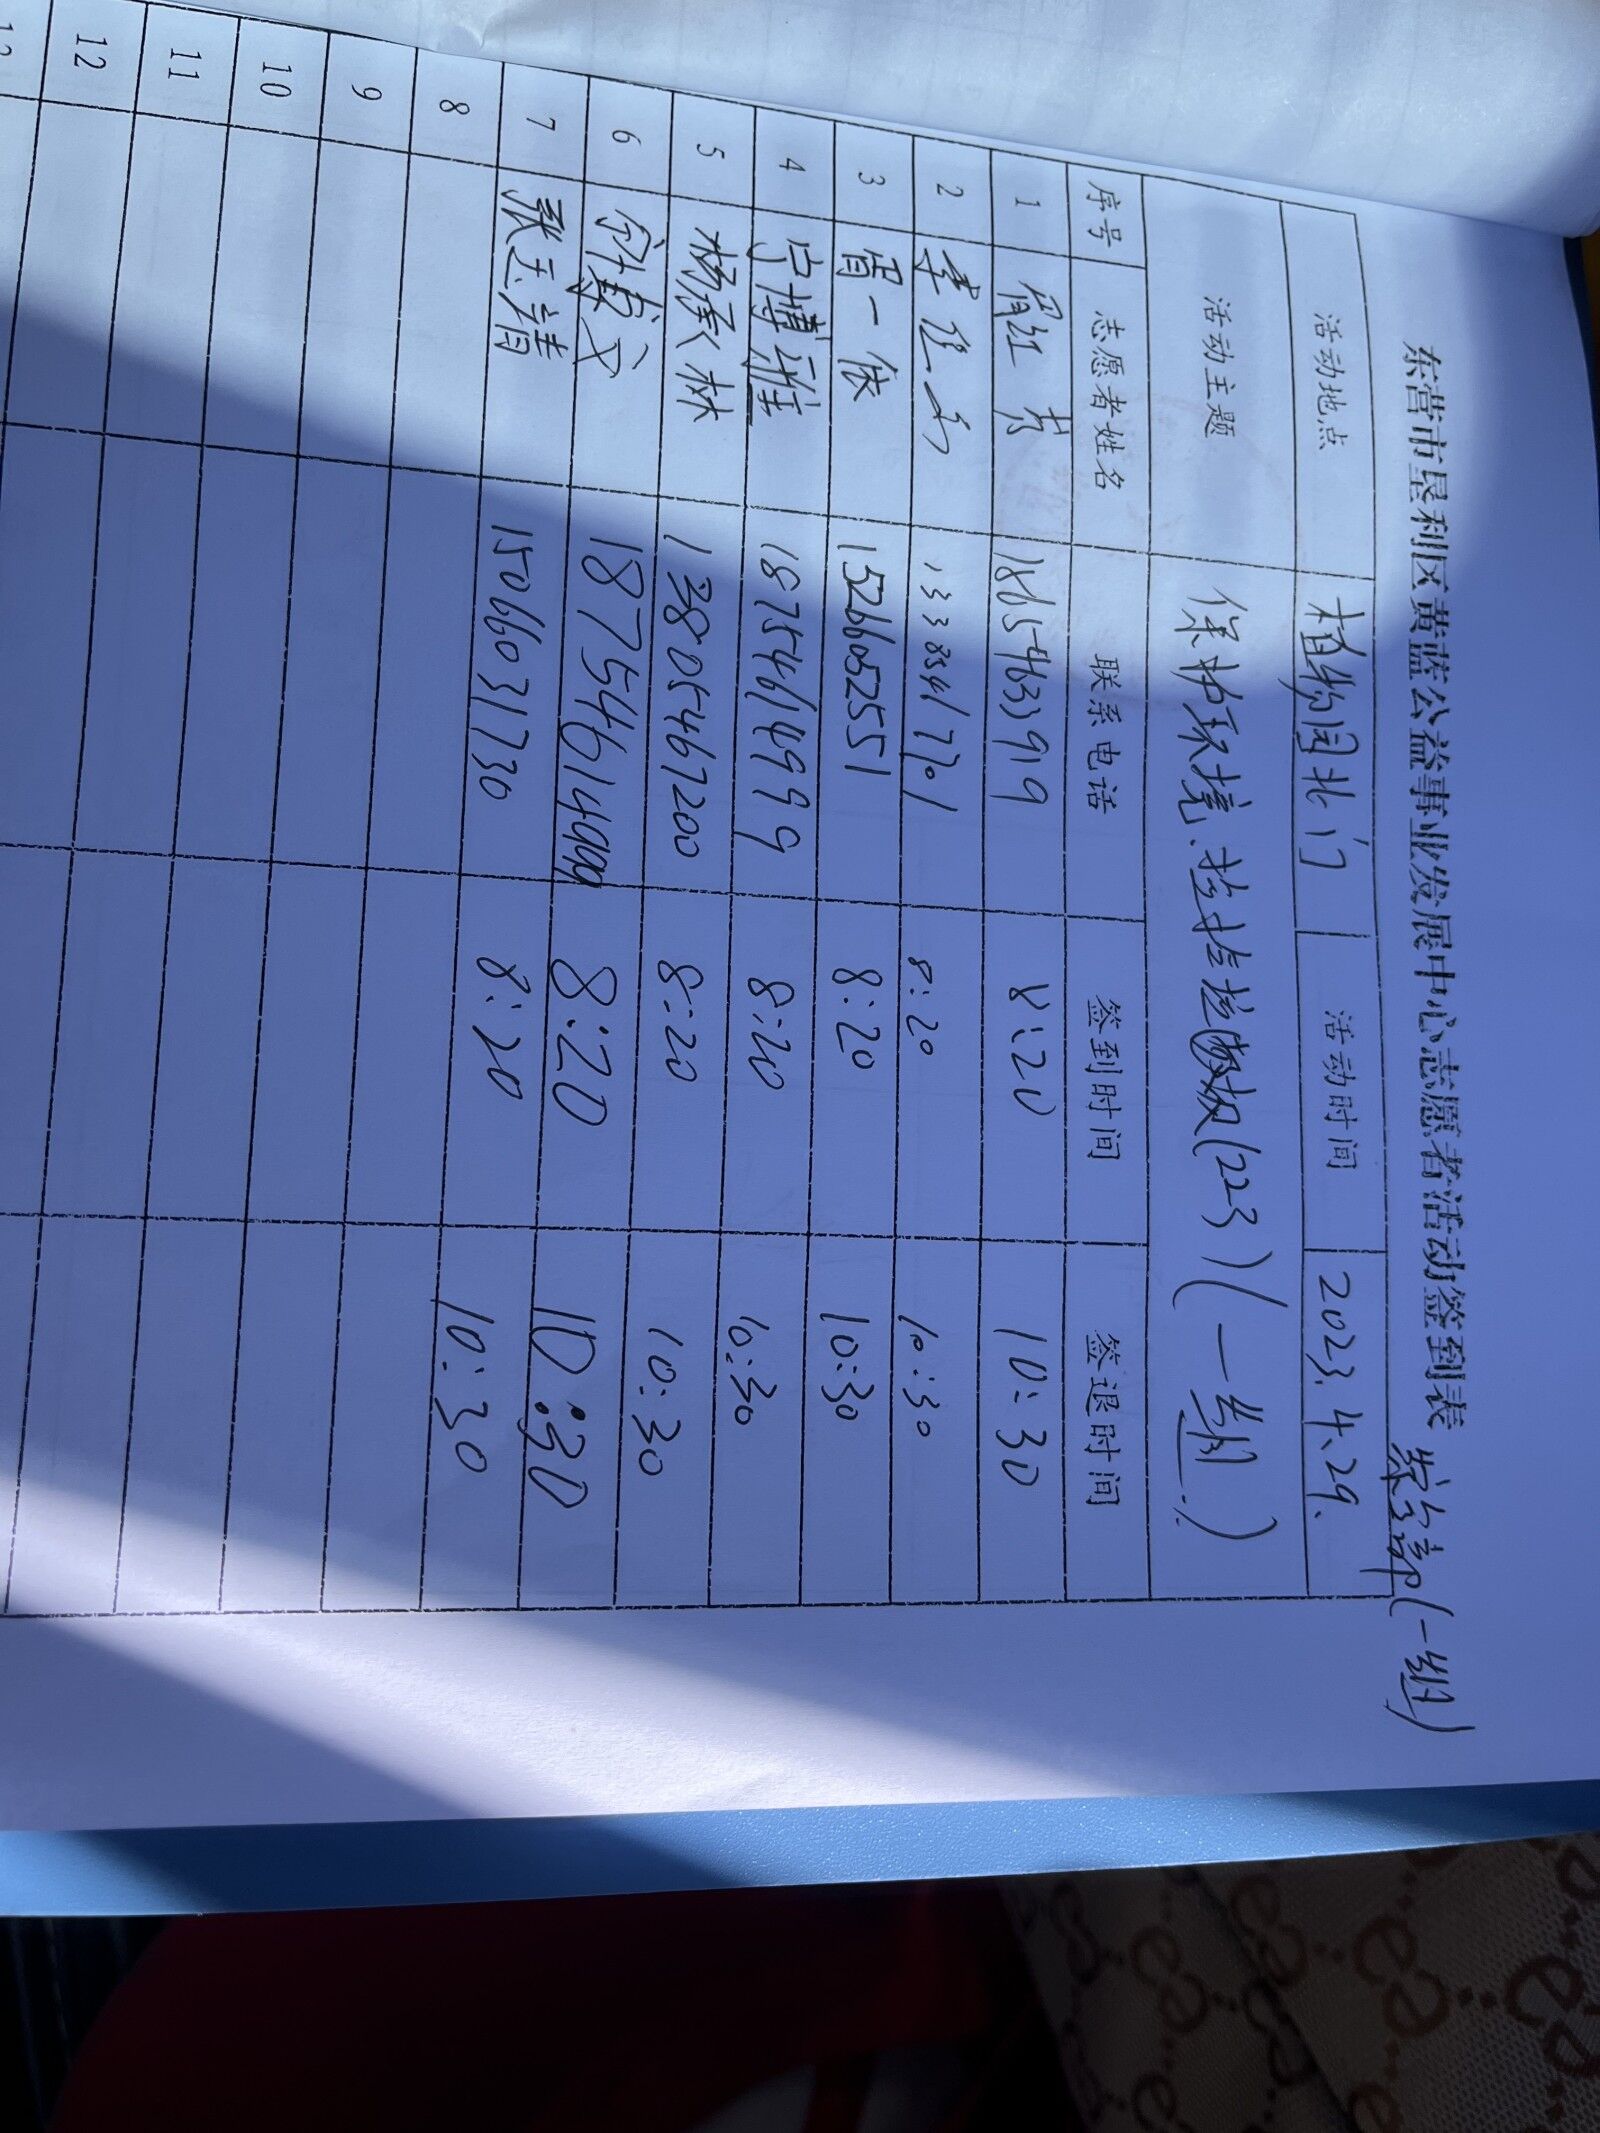 东营市垦利区黄蓝公益事业发展中心志愿者活动签到表 (一组)
活动地点 植物园北门 活动时间 2023.4.29.
活动主题 保护环境、捡拾垃圾(223)(一组)
序号 志愿者姓名 联系电话 签到时间 签退时间
1 红 18654633919 8:20 10:30
2 李 8:20 10:30
3 一依 15266052551 8:20 10:30
4 博雅 18754614999 8:20 10:30
5 杨承林 13805467200 8:20 10:30
6 18754614999 8:20 10:30
7 张玉清 15066031730 8:20 10:30
8
9
10
11
12